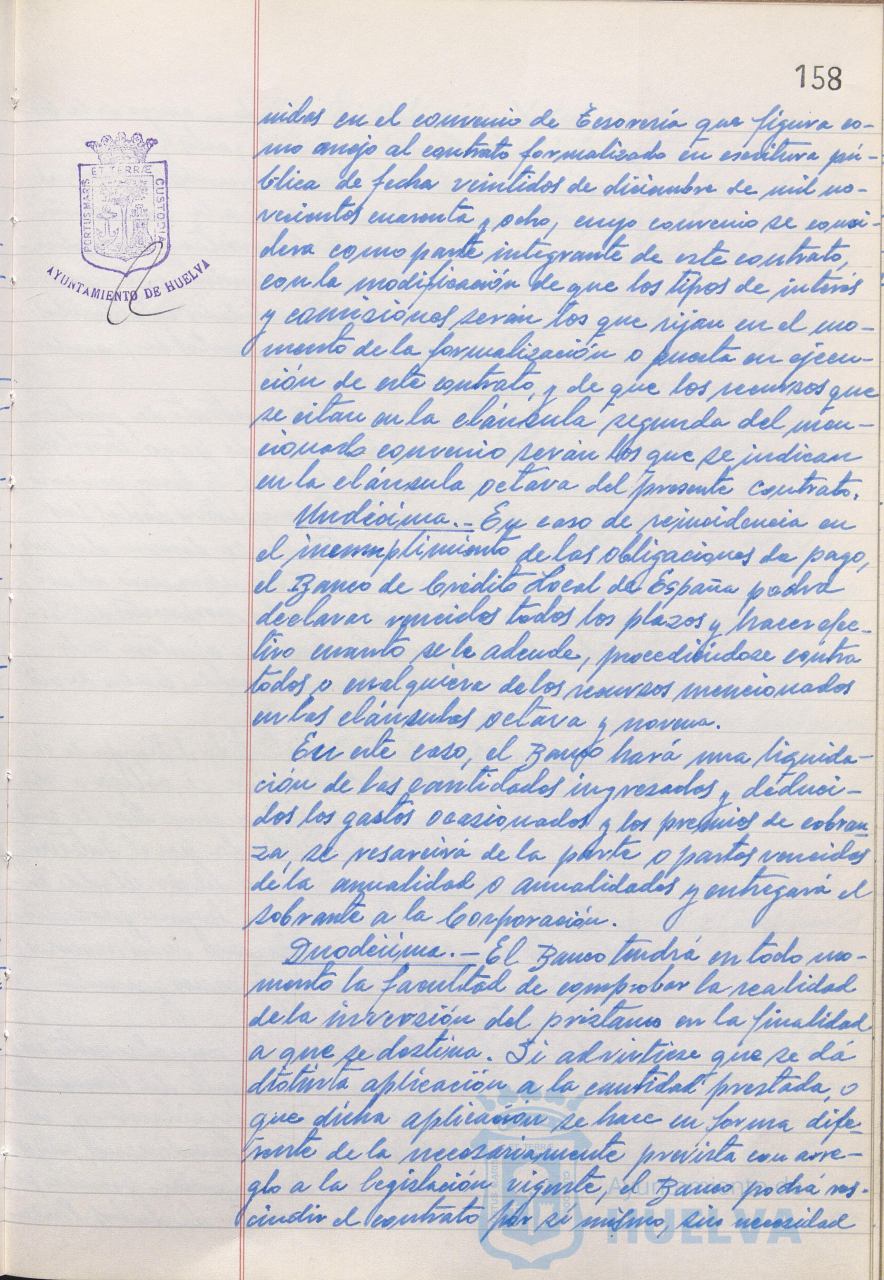 158
PORTUS MARIS
ET TERRÆ
CUSTODIA
AYUNTAMIENTO DE HUELVA
nidas en el convenio de Tesorería que figura co-
mo anejo al contrato formalizado en escritura pú-
blica de fecha veintidos de diciembre de mil no-
vecientos cuarenta y ocho, cuyo convenio se consi-
dera como parte integrante de este contrato,
con la modificación de que los tipos de interés
y comisiones serán los que rijan en el mo-
mento de la formalización o puesta en ejecu-
ción de este contrato, y de que los recursos que
se citan en la cláusula segunda del men-
cionado convenio serán los que se indican
en la cláusula octava del presente contrato.
Undécima.- En caso de reincidencia en
el incumplimiento de las obligaciones de pago,
el Banco de Crédito Local de España podrá
declarar vencidos todos los plazos y hacer efec-
tivo cuanto se le adeude, procediéndose contra
todos o cualquiera de los recursos mencionados
en las cláusulas octava y novena.
En este caso, el Banco hará una liquida-
ción de las cantidades ingresadas y deduci-
dos los gastos ocasionados y los premios de cobran-
za, se resarcirá de la parte o partes vencidas
de la anualidad o anualidades y entregará el
sobrante a la Corporación.
Duodécima.- El Banco tendrá en todo mo-
mento la facultad de comprobar la realidad
de la inversión del préstamo en la finalidad
a que se destina. Si advirtiese que se dá
distinta aplicación a la cantidad prestada, o
que dicha aplicación se hace en forma dife-
rente de la necesariamente prevista con arre-
glo a la legislación vigente, el Banco podrá res-
cindir el contrato por sí mismo, sin necesidad
Ayuntamiento de
HUELVA